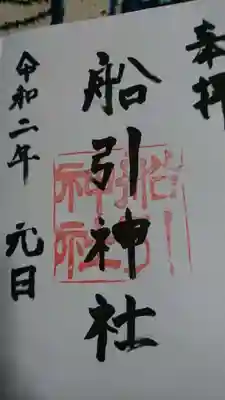 奉拝
船引神社
船引神社
令和二年 元日